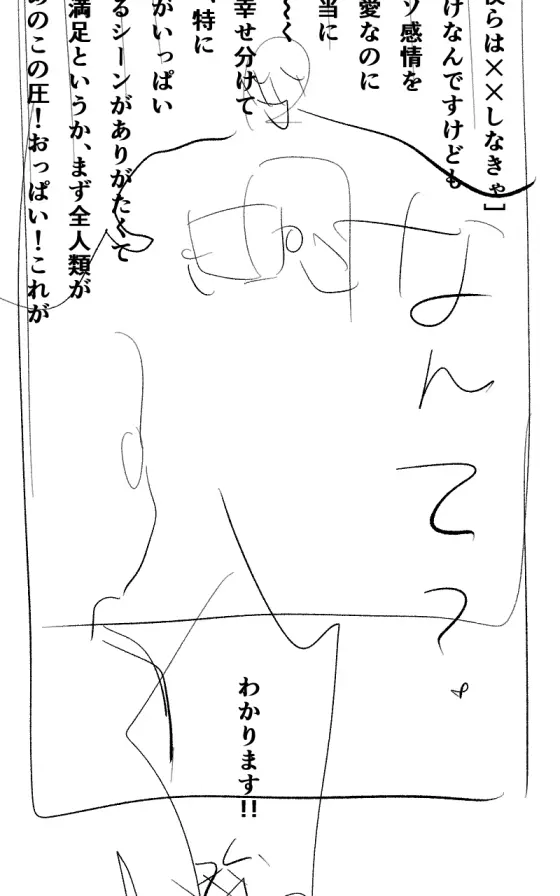 僕らは××しなきゃ]
けなんですけども
ソ感情を
愛なのに
当に
〜く
幸せ分けて
、特に
がいっぱい
るシーンがありがたくて
満足というか、まず全人類が
めのこの圧！おっぱい！これが
なんてっ
わかります!!